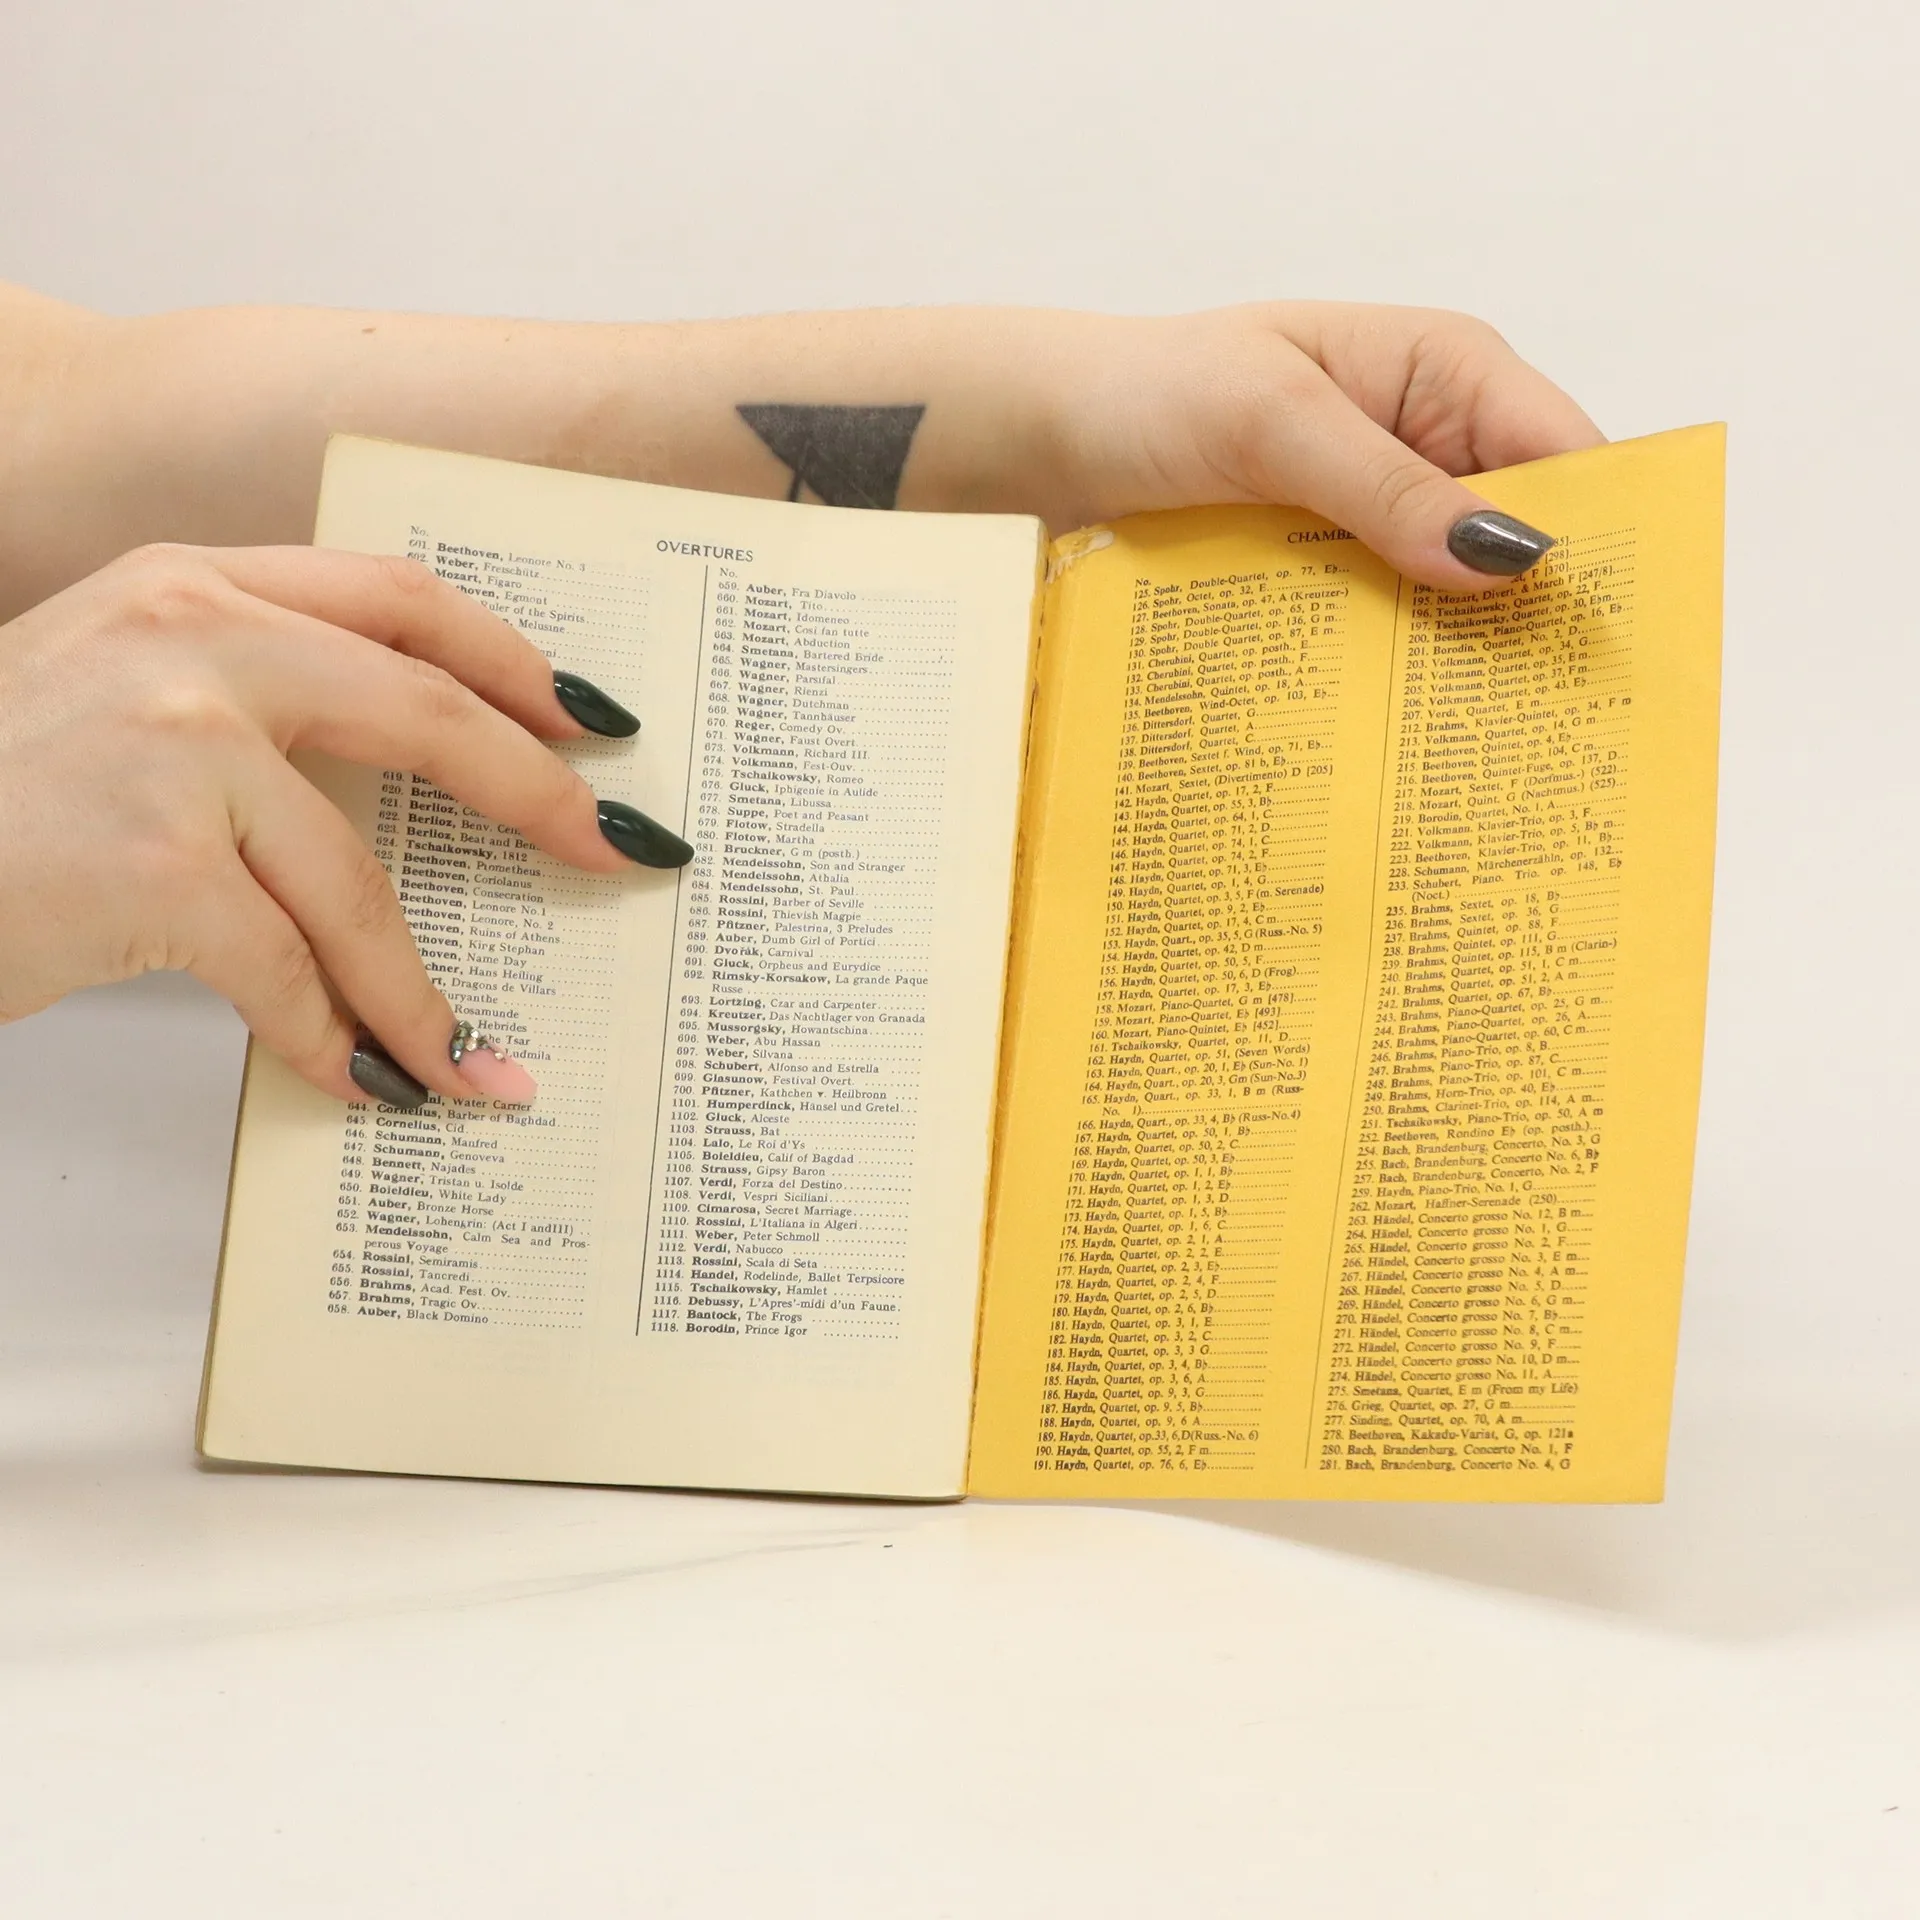 OVERTURES
No.
601. Beethoven, Leonore No. 3
602. Weber, Freischütz
Mozart, Figaro
Egmont
Ruler of the Spirits
Melusine
619.
620. Berlioz,
621. Berlioz,
622. Berlioz, Benv.
623. Berlioz, Beat and
624. Tschaikowsky, 1812
625. Beethoven, Prometheus
Beethoven, Coriolanus
Beethoven, Consecration
Beethoven, Leonore No.1
Beethoven, Leonore, No. 2
Ruins of Athens
King Stephan
Name Day
Hans Heiling
Dragons de Villars
Euryanthe
Rosamunde
Hebrides
Tsar
Ludmila
Water Carrier
644. Cornelius, Barber of Baghdad
645. Cornelius, Cid
646. Schumann, Manfred
647. Schumann, Genoveva
648. Bennett, Najades
649. Wagner, Tristan u. Isolde
650. Boieldieu, White Lady
651. Auber, Bronze Horse
652. Wagner, Lohengrin: (Act I and III)
653. Mendelssohn, Calm Sea and Pros-
perous Voyage
654. Rossini, Semiramis
655. Rossini, Tancredi
656. Brahms, Acad. Fest. Ov.
657. Brahms, Tragic Ov.
658. Auber, Black Domino
No.
659. Auber, Fra Diavolo
660. Mozart, Tito
661. Mozart, Idomeneo
662. Mozart, Cosi fan tutte
663. Mozart, Abduction
664. Smetana, Bartered Bride
665. Wagner, Mastersingers
666. Wagner, Parsifal
667. Wagner, Rienzi
668. Wagner, Dutchman
669. Wagner, Tannhäuser
670. Reger, Comedy Ov.
671. Wagner, Faust Overt.
673. Volkmann, Richard III.
674. Volkmann, Fest-Ouv.
675. Tschaikowsky, Romeo
676. Gluck, Iphigenie in Aulide
677. Smetana, Libussa
678. Suppe, Poet and Peasant
679. Flotow, Stradella
680. Flotow, Martha
681. Bruckner, G m (posth.)
682. Mendelssohn, Son and Stranger
683. Mendelssohn, Athalia
684. Mendelssohn, St. Paul
685. Rossini, Barber of Seville
686. Rossini, Thievish Magpie
687. Pfitzner, Palestrina, 3 Preludes
689. Auber, Dumb Girl of Portici
690. Dvořák, Carnival
691. Gluck, Orpheus and Eurydice
692. Rimsky-Korsakow, La grande Paque
Russe
693. Lortzing, Czar and Carpenter
694. Kreutzer, Das Nachtlager von Granada
695. Mussorgsky, Howantschina
696. Weber, Abu Hassan
697. Weber, Silvana
698. Schubert, Alfonso and Estrella
699. Glasunow, Festival Overt.
700. Pfitzner, Kathchen v. Heilbronn
1101. Humperdinck, Hänsel und Gretel
1102. Gluck, Alceste
1103. Strauss, Bat
1104. Lalo, Le Roi d'Ys
1105. Boieldieu, Calif of Bagdad
1106. Strauss, Gipsy Baron
1107. Verdi, Forza del Destino
1108. Verdi, Vespri Siciliani
1109. Cimarosa, Secret Marriage
1110. Rossini, L'Italiana in Algeri
1111. Weber, Peter Schmoll
1112. Verdi, Nabucco
1113. Rossini, Scala di Seta
1114. Handel, Rodelinde, Ballet Terpsicore
1115. Tschaikowsky, Hamlet
1116. Debussy, L'Apres'-midi d'un Faune.
1117. Bantock, The Frogs
1118. Borodin, Prince Igor
CHAMBE
No.
125. Spohr, Double-Quartet, op. 77, E♭
126. Spohr, Octet, op. 32, E
127. Beethoven, Sonata, op. 47, A (Kreutzer-)
128. Spohr, Double-Quartet, op. 65, D m
129. Spohr, Double-Quartet, op. 136, G m
130. Spohr, Double Quartet, op. 87, E m
131. Cherubini, Quartet, op. posth., E
132. Cherubini, Quartet, op. posth., F
133. Cherubini, Quartet, op. posth., A m
134. Mendelssohn, Quintet, op. 18, A
135. Beethoven, Wind-Octet, op. 103, E♭
136. Dittersdorf, Quartet, G
137. Dittersdorf, Quartet, A
138. Dittersdorf, Quartet, C
139. Beethoven, Sextet f. Wind, op. 71, E♭
140. Beethoven, Sextet, op. 81 b, E♭
141. Mozart, Sextet, (Divertimento) D [205]
142. Haydn, Quartet, op. 17, 2, F
143. Haydn, Quartet, op. 55, 3, B♭
144. Haydn, Quartet, op. 64, 1, C
145. Haydn, Quartet, op. 71, 2, D
146. Haydn, Quartet, op. 74, 1, C
147. Haydn, Quartet, op. 74, 2, F
148. Haydn, Quartet, op. 71, 3, E♭
149. Haydn, Quartet, op. 1, 4, G
150. Haydn, Quartet, op. 3, 5, F (m. Serenade)
151. Haydn, Quartet, op. 9, 2, E♭
152. Haydn, Quartet, op. 17, 4, C m
153. Haydn, Quart., op. 35, 5, G (Russ.-No. 5)
154. Haydn, Quartet, op. 42, D m
155. Haydn, Quartet, op. 50, 5, F
156. Haydn, Quartet, op. 50, 6, D (Frog)
157. Haydn, Quartet, op. 17, 3, E♭
158. Mozart, Piano-Quartet, G m [478]
159. Mozart, Piano-Quartet, E♭ [493]
160. Mozart, Piano-Quintet, E♭ [452]
161. Tschaikowsky, Quartet, op. 11, D
162. Haydn, Quartet, op. 51, (Seven Words)
163. Haydn, Quart., op. 20, 1, E♭ (Sun-No. 1)
164. Haydn, Quart., op. 20, 3, Gm (Sun-No.3)
165. Haydn, Quart., op. 33, 1, B m (Russ-
No. 1)
166. Haydn, Quart., op. 33, 4, B♭ (Russ-No.4)
167. Haydn, Quartet, op. 50, 1, B♭
168. Haydn, Quartet, op. 50, 2, C
169. Haydn, Quartet, op. 50, 3, E♭
170. Haydn, Quartet, op. 1, 1, B♭
171. Haydn, Quartet, op. 1, 2, E♭
172. Haydn, Quartet, op. 1, 3, D
173. Haydn, Quartet, op. 1, 5, B♭
174. Haydn, Quartet, op. 1, 6, C
175. Haydn, Quartet, op. 2, 1, A
176. Haydn, Quartet, op. 2, 2, E
177. Haydn, Quartet, op. 2, 3, E♭
178. Haydn, Quartet, op. 2, 4, F
179. Haydn, Quartet, op. 2, 5, D
180. Haydn, Quartet, op. 2, 6, B♭
181. Haydn, Quartet, op. 3, 1, E
182. Haydn, Quartet, op. 3, 2, C
183. Haydn, Quartet, op. 3, 3 G
184. Haydn, Quartet, op. 3, 4, B♭
185. Haydn, Quartet, op. 3, 6, A
186. Haydn, Quartet, op. 9, 3, G
187. Haydn, Quartet, op. 9. 5, B♭
188. Haydn, Quartet, op. 9, 6 A
189. Haydn, Quartet, op.33, 6,D(Russ.-No. 6)
190. Haydn, Quartet, op. 55, 2, F m
191. Haydn, Quartet, op. 76, 6, E♭
85]
[298]
F [370]
194.
195. Mozart, Divert. & March F [247/8]
196. Tschaikowsky, Quartet, op. 22, F
197. Tschaikowsky, Quartet, op. 30, E♭m
200. Beethoven, Piano-Quartet, op. 16, E♭
201. Borodin, Quartet, No. 2, D
203. Volkmann, Quartet, op. 34, G
204. Volkmann, Quartet, op. 35, E m
205. Volkmann, Quartet, op. 37, F m
206. Volkmann, Quartet, op. 43, E♭
207. Verdi, Quartet, E m
212. Brahms, Klavier-Quintet, op. 34, F m
213. Volkmann, Quartet, op. 14, G m
214. Beethoven, Quintet, op. 4, E♭
215. Beethoven, Quintet, op. 104, C m
216. Beethoven, Quintet-Fuge, op. 137, D
217. Mozart, Sextet, F (Dorfmus.-) (522)
218. Mozart, Quint. G (Nachtmus.) (525)
219. Borodin, Quartet, No. 1, A
221. Volkmann, Klavier-Trio, op. 3, F
222. Volkmann, Klavier-Trio, op. 5, B♭ m
223. Beethoven, Klavier-Trio, op. 11, B♭
228. Schumann, Märchenerzähln, op. 132
233. Schubert, Piano. Trio. op. 148, E♭
(Noct.)
235. Brahms, Sextet, op. 18, B♭
236. Brahms, Sextet, op. 36, G
237. Brahms, Quintet, op. 88, F
238. Brahms, Quintet, op. 111, G
239. Brahms, Quintet, op. 115, B m (Clarin-)
240. Brahms, Quartet, op. 51, 1, C m
241. Brahms, Quartet, op. 51, 2, A m
242. Brahms, Quartet, op. 67, B♭
243. Brahms, Piano-Quartet, op. 25, G m
244. Brahms, Piano-Quartet, op. 26, A
245. Brahms, Piano-Quartet, op. 60, C m
246. Brahms, Piano-Trio, op. 8, B
247. Brahms, Piano-Trio, op. 87, C
248. Brahms, Piano-Trio, op. 101, C m
249. Brahms, Horn-Trio, op. 40, E♭
250. Brahms, Clarinet-Trio, op. 114, A m
251. Tschaikowsky, Piano-Trio, op. 50, A m
252. Beethoven, Rondino E♭ (op. posth.)
254. Bach, Brandenburg, Concerto, No. 3, G
255. Bach, Brandenburg, Concerto No. 6, B♭
257. Bach, Brandenburg, Concerto, No. 2, F
259. Haydn, Piano-Trio, No. 1, G
262. Mozart, Haffner-Serenade (250)
263. Händel, Concerto grosso No. 12, B m
264. Händel, Concerto grosso No. 1, G
265. Händel, Concerto grosso No. 2, F
266. Händel, Concerto grosso No. 3, E m
267. Händel, Concerto grosso No. 4, A m
268. Händel, Concerto grosso No. 5, D
269. Händel, Concerto grosso No. 6, G m
270. Händel, Concerto grosso No. 7, B♭
271. Händel, Concerto grosso No. 8, C m
272. Händel, Concerto grosso No. 9, F
273. Händel, Concerto grosso No. 10, D m
274. Händel, Concerto grosso No. 11, A
275. Smetana, Quartet, E m (From my Life)
276. Grieg, Quartet, op. 27, G m
277. Sinding, Quartet, op. 70, A m
278. Beethoven, Kakadu-Variat, G, op. 121a
280. Bach, Brandenburg, Concerto No. 1, F
281. Bach, Brandenburg, Concerto No. 4, G